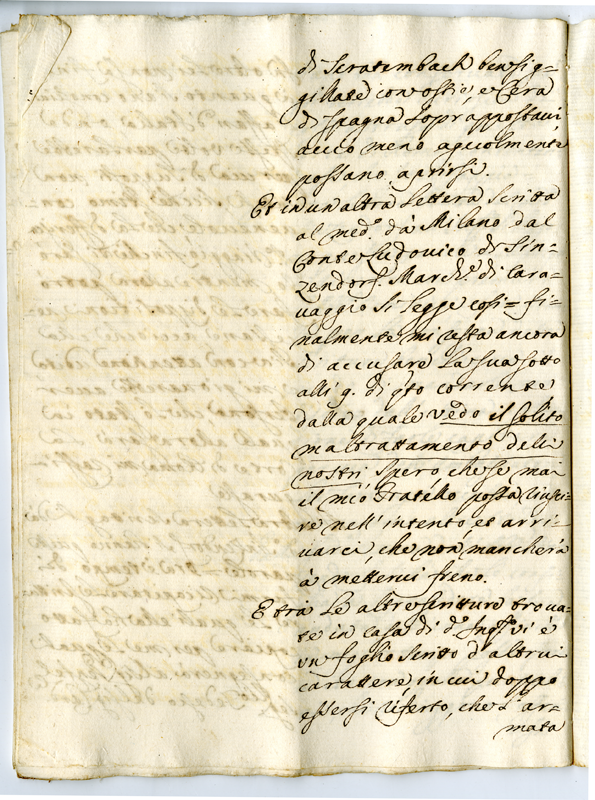 di Scratembach ben sig=
gillate con ostie, e Cera
di Spagna soprappostavi
acciò meno agevolmente
possano aprirsi.
Et in un altra lettera scritta
al med.º dà Milano dal
Conte Ludovico di Sin=
zendorf. March.e di Cara=
vaggio si legge così = fi=
nalmente mi resta ancora
di accusare la sua sotto
alli 9. di q̃to corrente
dalla quale vedo il solito
maltrattamento delli
nostri spero, che se mai
il mio fratello possa riusci=
re nell'intento, et arri=
varci, che non mancherà
à mettervi freno.
E trà le altre scritture trova=
te in casa di d.º Ing.r vi è
un foglio scritto d'altrui
carattere, in cui doppo
essersi riferto, che l'ar=
mata